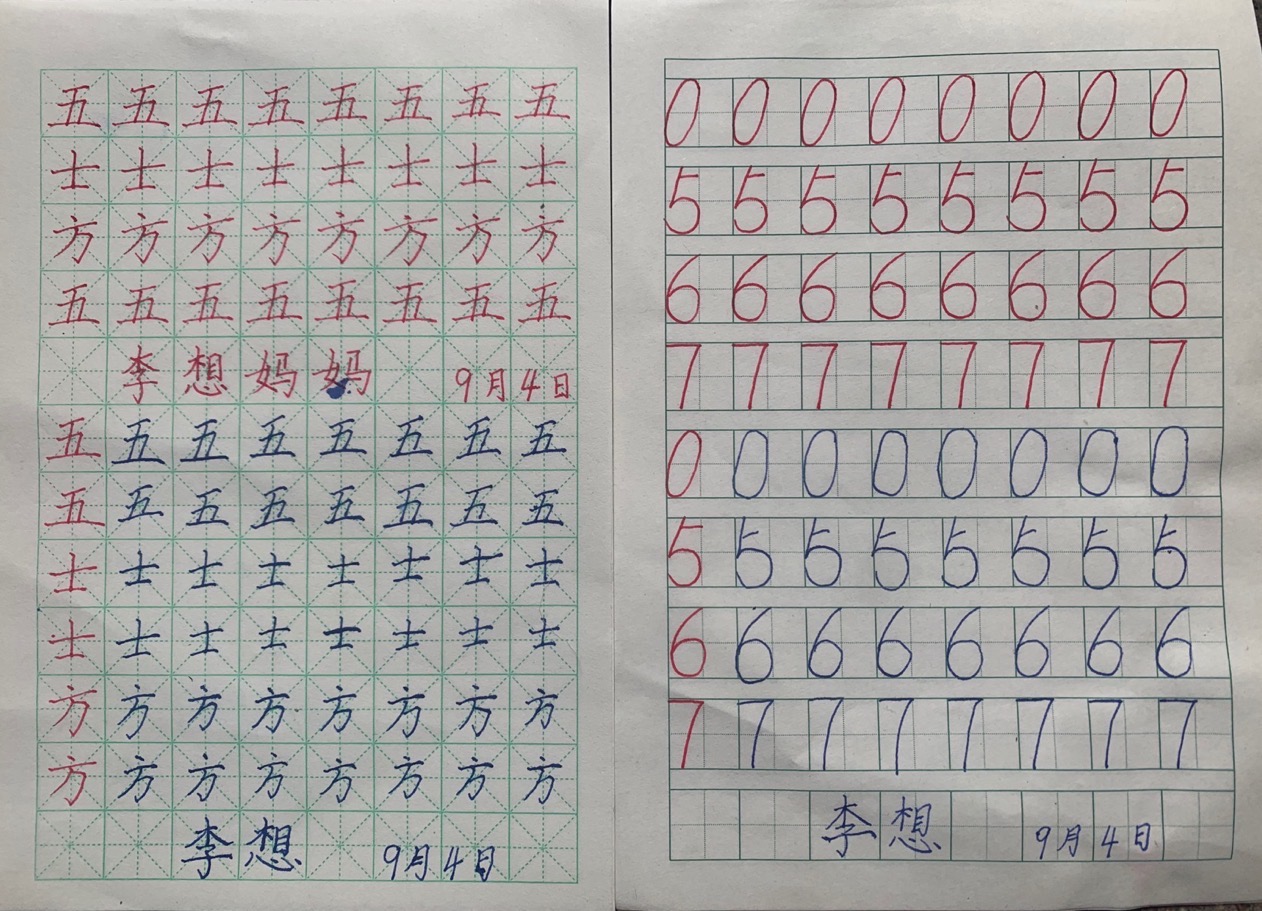 五五五五五五五五
士士士士士士士士
方方方方方方方方
五五五五五五五五
李想妈妈 9月4日
五五五五五五五五
五五五五五五五五
士士士士士士士士
士士士士士士士士
方方方方方方方方
方方方方方方方方
李想 9月4日
0 0 0 0 0 0 0 0
5 5 5 5 5 5 5 5
6 6 6 6 6 6 6 6
7 7 7 7 7 7 7 7
0 0 0 0 0 0 0 0
5 5 5 5 5 5 5 5
6 6 6 6 6 6 6 6
7 7 7 7 7 7 7 7
李想 9月4日